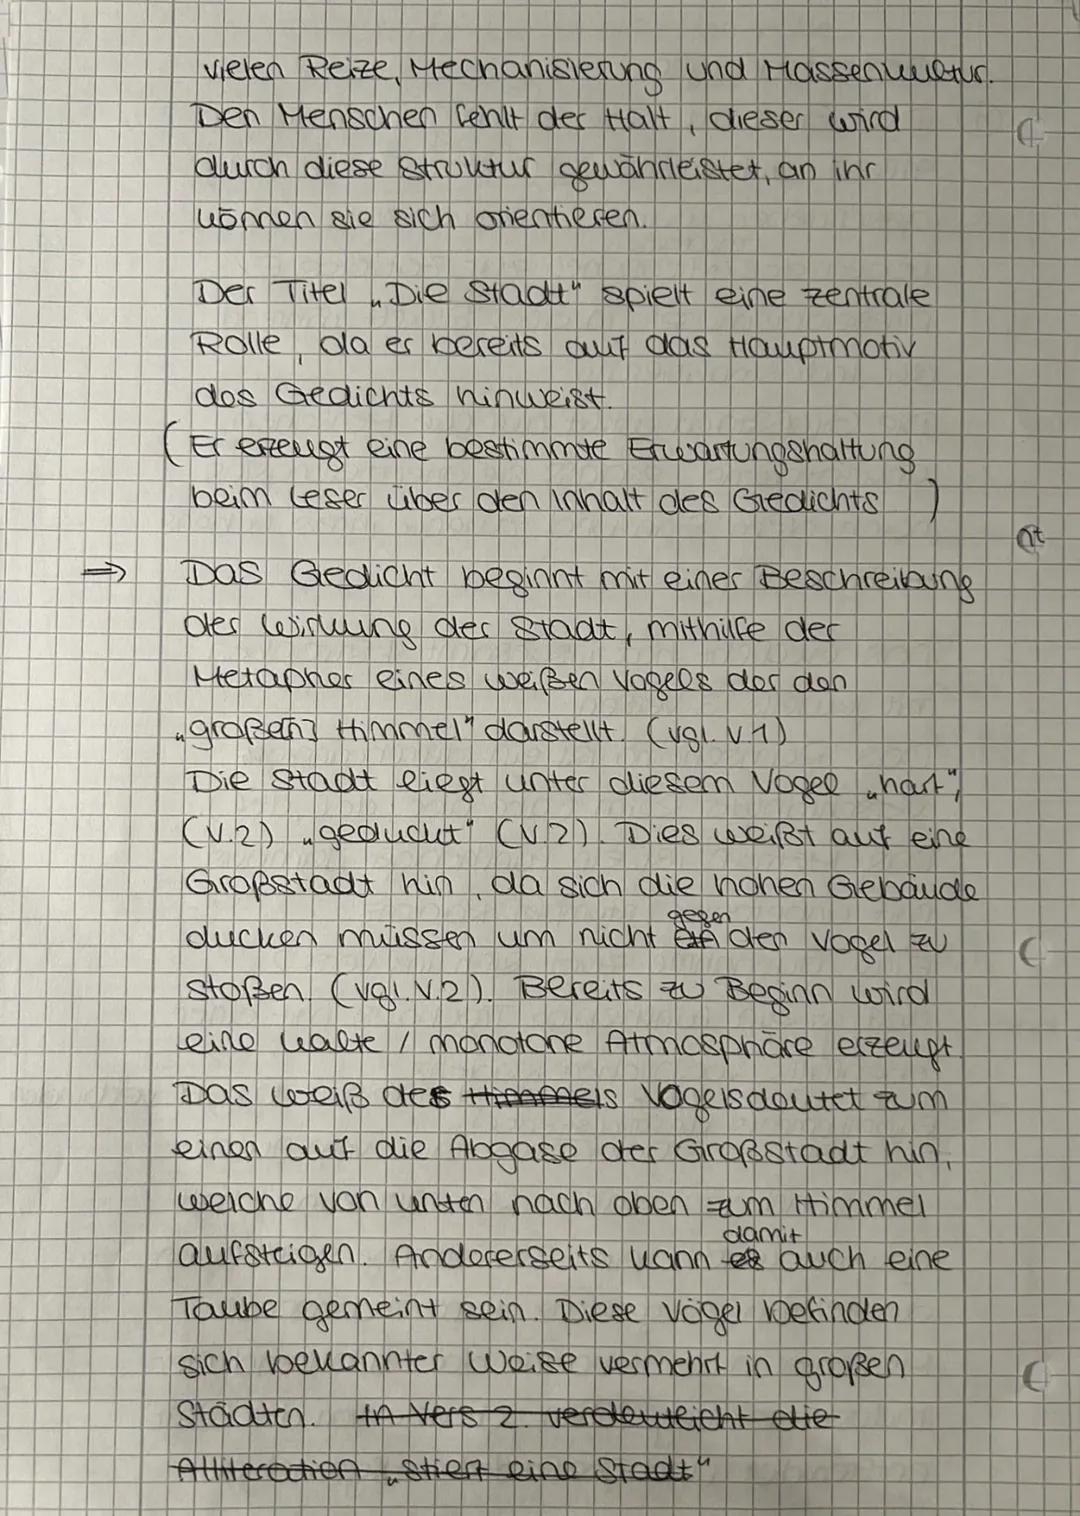 vielen Reize, Mechanisierung und Massenkultur.
Den Menschen fehlt der Halt, dieser wird
durch diese Struktur gewährleistet, an ihr
können sie sich orientieren.
Der Titel „Die Stadt" spielt eine zentrale
Rolle, da er bereits auf das Hauptmotiv
des Gedichts hinweist.
(Er erzeugt eine bestimmte Erwartungshaltung
beim Leser über den Inhalt des Gedichts )
⇒ Das Gedicht beginnt mit einer Beschreibung
der Wirkung der Stadt, mithilfe der
Metapher eines weißen Vogels der den
„großen] Himmel" darstellt. (vgl. V.1)
Die Stadt liegt unter diesem Vogel „hart",
(V.2) „geduckt" (V.2). Dies weißt auf eine
Großstadt hin, da sich die hohen Gebäude
ducken müssen um nicht gegen den Vogel zu
stoßen. (vgl. V.2). Bereits zu Beginn wird
eine kalte / monotone Atmosphäre erzeugt.
Das weiß des Himmels Vogels deutet zum
einen auf die Abgase der Großstadt hin,
welche von unten nach oben zum Himmel
aufsteigen. Andererseits kann es damit auch eine
Taube gemeint sein. Diese Vögel befinden
sich bekannter Weise vermehrt in großen
Städten. In Vers 2 verdeutlicht die
Alliteration „stiert eine Stadt"